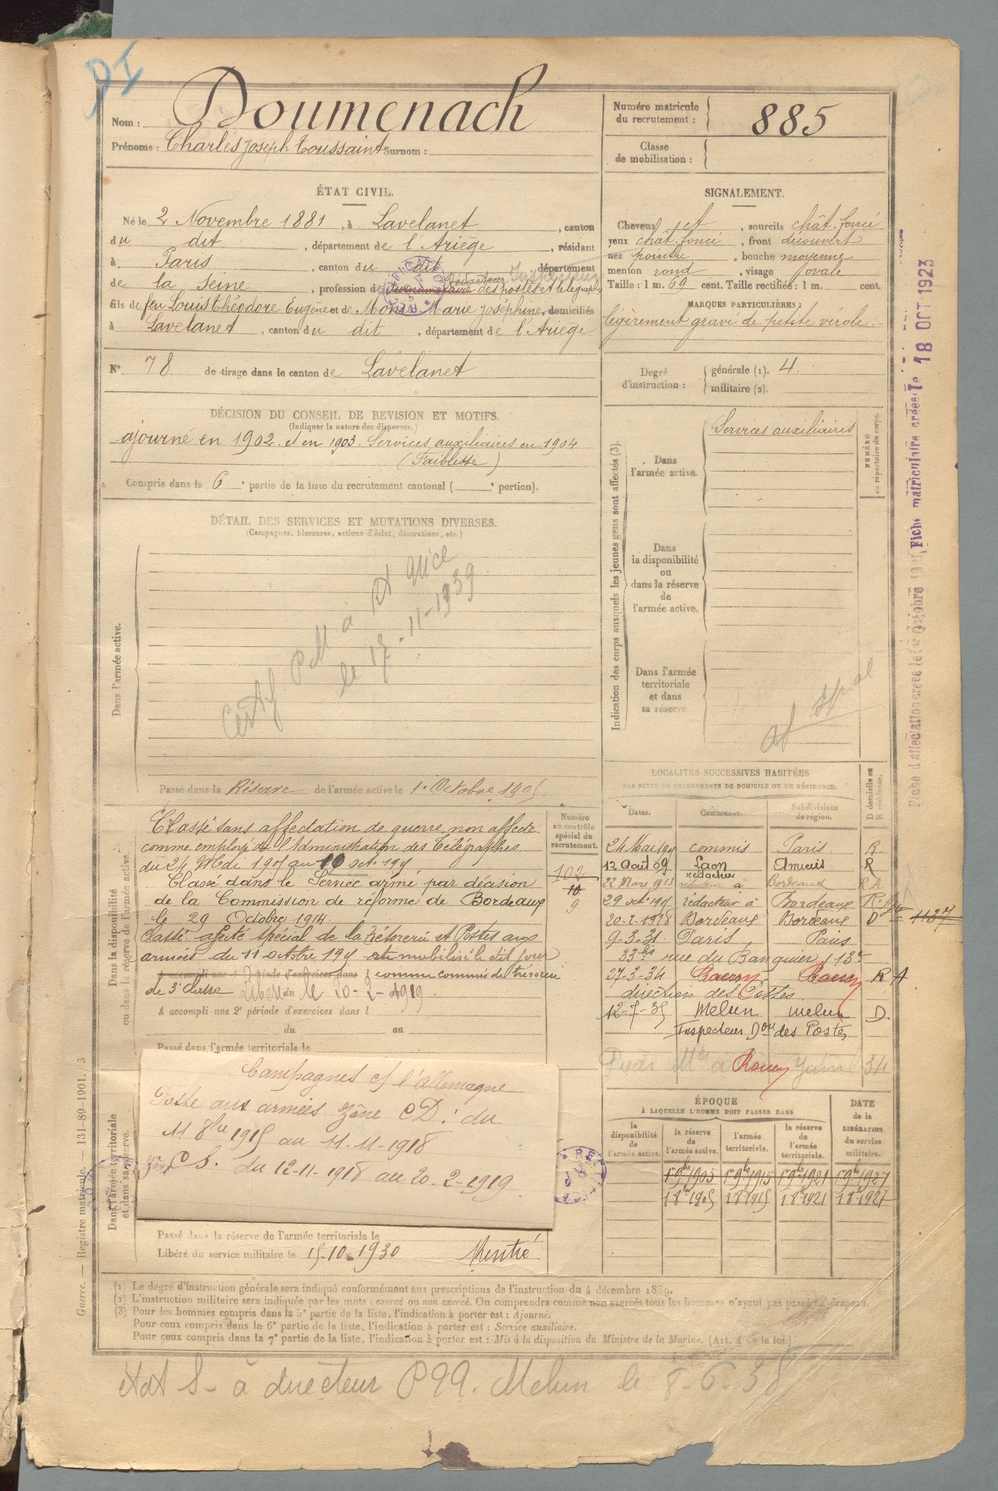 Nom : Doumenach
Prénoms : Charles Joseph Toussaint Surnom :
Numéro matricule du recrutement : 885
Classe de mobilisation :
ÉTAT CIVIL.
Né le 2 Novembre 1881, à Lavelanet, canton
du dit, département de l'Ariège, résidant
à Paris, canton du dit, département
de la Seine, profession de Rédacteur des postes et télégraphes
fils de feu Louis Théodore Eugène et de Marie Joséphine, domiciliés
à Lavelanet, canton du dit, département de l'Ariège
N° 78 de tirage dans le canton de Lavelanet
SIGNALEMENT.
Cheveux jet, sourcils chât. foncé
yeux chât. foncé, front découvert
nez pointu, bouche moyenne
menton rond, visage ovale
Taille : 1 m. 69 cent. Taille rectifiée : 1 m. cent.
MARQUES PARTICULIÈRES :
légèrement gravé de petite vérole
Degré d'instruction : générale (1). 4
militaire (2).
DÉCISION DU CONSEIL DE REVISION ET MOTIFS.
(Indiquer la nature des dispenses.)
ajourné en 1902 et en 1903. Services auxiliaires en 1904
(Faiblesse)
Compris dans la 6e partie de la liste du recrutement cantonal ( portion).
DÉTAIL DES SERVICES ET MUTATIONS DIVERSES.
(Campagnes, blessures, actions d'éclat, décorations, etc.)
Dans l'armée active.
Certif
le 17-11-1939
Passé dans la Réserve de l'armée active le 1er Octobre 1905
Indication des corps auxquels les jeunes gens sont affectés (3).
Dans l'armée active.
Services auxiliaires
Dans la disponibilité ou dans la réserve de l'armée active.
Dans l'armée territoriale et dans sa réserve.
NUMÉRO au répertoire du corps.
Fiche matriculaire créée le 18 OCT 1923
Dans la disponibilité ou dans la réserve de l'armée active.
Classé sans affectation de guerre, non affecté
comme employé de l'Administration des Télégraphes
du 24 Mai 1905 au 10 oct. 191
Classé dans le Service armé par décision
de la Commission de réforme de Bordeaux
le 29 Octobre 1914
Classé affecté spécial de la Trésorerie et Postes aux
armées du 11 octobre 191 mobilisé le dit jour
A accompli une 1e Période d'exercices dans comme commis de trésorerie
de 3e classe Libéré le 20-2-1919
A accompli une 2e période d'exercices dans l
du au
Passé dans l'armée territoriale le
Numéro au contrôle spécial du recrutement.
102
10
9
LOCALITÉS SUCCESSIVES HABITÉES
PAR SUITE DE CHANGEMENTS DE DOMICILE OU DE RÉSIDENCE.
Dates. Communes. Subdivisions de région. D domicile ou R résidence.
24 Mai 1905 commis Paris R
12 Août 09 Laon Amiens R
22 Mars 1913 rédacteur à Bordeaux R
29 oct 191 rédacteur à Bordeaux R
20-2-1928 Bordeaux Bordeaux D
9-3-31 Paris Paris
33 bis rue du Banquier 13e
27-3-34 Rouen Rouen R
direction des Postes
12-7-35 Melun Melun D.
Inspecteur des Postes
Rouen
Campagnes c/ l'Allemagne
Poste aux armées zône CD : du
11 8bre 1915 au 11-11-1918
zône C S. du 12-11-1918 au 20-2-1919
Dans l'armée territoriale et dans sa réserve.
Passé dans la réserve de l'armée territoriale le
Libéré du service militaire le 15.10.1930
ÉPOQUE
À LAQUELLE L'HOMME DOIT PASSER DANS
la disponibilité de l'armée active. la réserve de l'armée active. l'armée territoriale. la réserve de l'armée territoriale. DATE de la LIBÉRATION du service militaire.
1 9bre 1905 1 9bre 1915 1 9bre 1921 1 9bre 1927
1 8 1905 1 8 1915 1 8 1921 1 8 1927
Guerre. — Registre matricule. — 131-89-1901.
(1) Le degré d'instruction générale sera indiqué conformément aux prescriptions de l'instruction du 4 décembre 1889.
(2) L'instruction militaire sera indiquée par les mots : exercé ou non exercé. On comprendra comme non exercés tous les hommes n'ayant pas passé
(3) Pour les hommes compris dans la 5e partie de la liste, l'indication à porter est : Ajourné.
Pour ceux compris dans la 6e partie de la liste, l'indication à porter est : Service auxiliaire.
Pour ceux compris dans la 7e partie de la liste, l'indication à porter est : Mis à la disposition du Ministre de la Marine. (Art. 4 de la loi.)
à directeur P99. Melun le 8-6-38